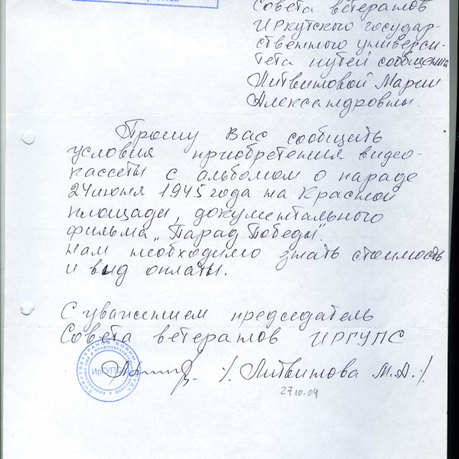 Совета ветеранов
Иркутского государ-
ственного универси-
тета путей сообщения
Литвиновой Марии
Александровны.
Прошу Вас сообщить
условия приобретения видео-
кассеты с альбомом о параде
24 июня 1945 года на Красной
площади, документального
фильма „Парад Победы".
Нам необходимо знать стоимость
и вид оплаты.
С уважением председатель
Совета ветеранов ИРГУПС
/Литвинова М.А./
27.10.04
ИрГУПС